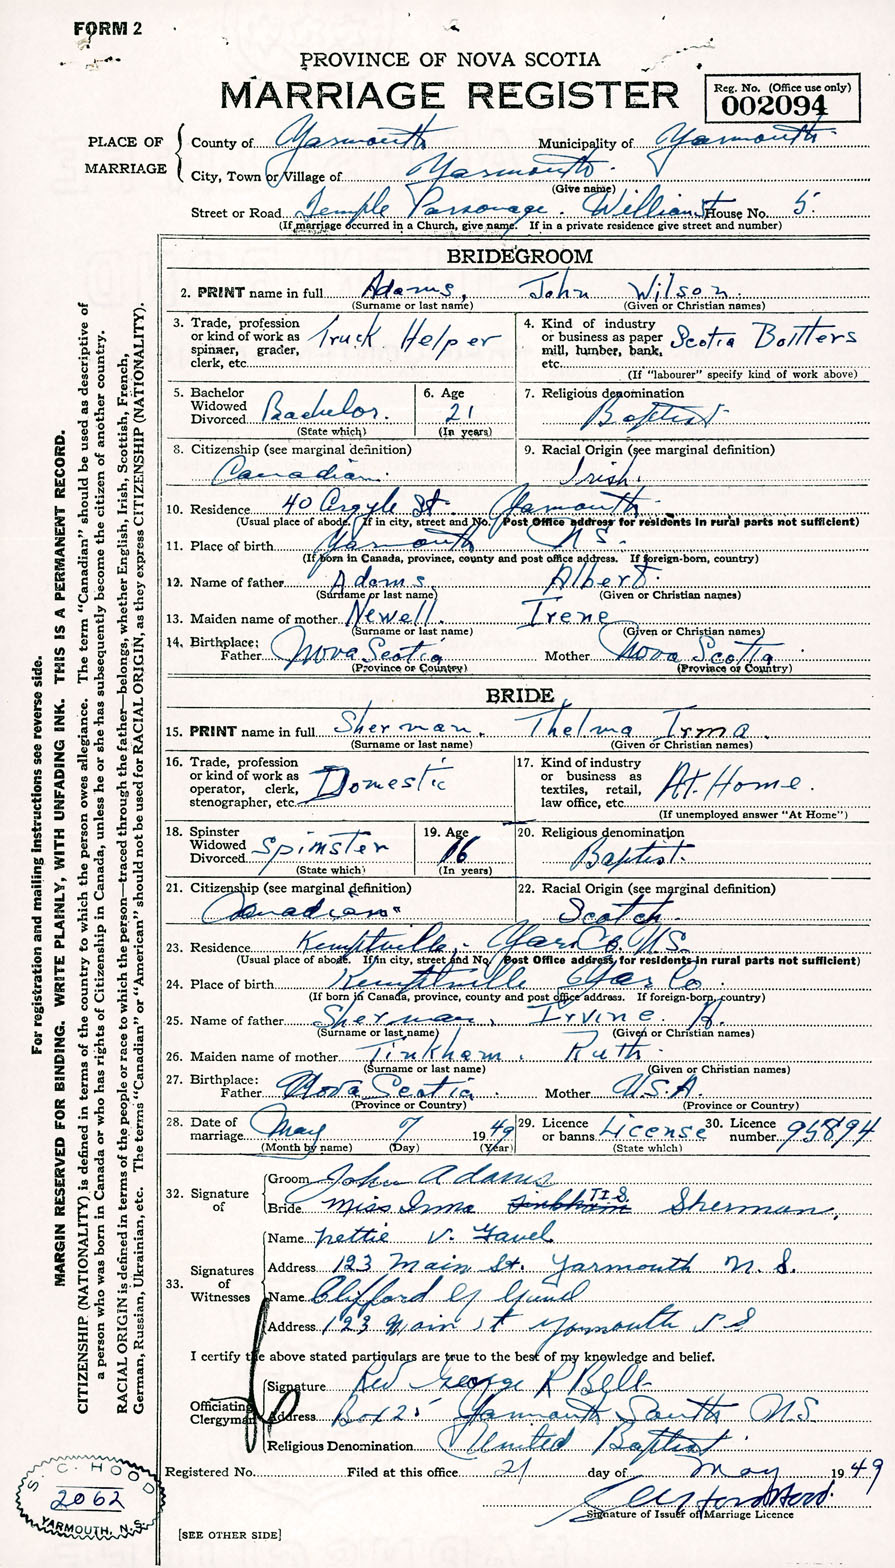 FORM 2
PROVINCE OF NOVA SCOTIA
MARRIAGE REGISTER
Reg. No. (Office use only)
002094
PLACE OF MARRIAGE
County of Yarmouth Municipality of Yarmouth
City, Town or Village of Yarmouth
(Give name)
Street or Road Temple Parsonage. William St House No. 5
(If marriage occurred in a Church, give name. If in a private residence give street and number)
BRIDEGROOM
2. PRINT name in full Adams, John Wilson.
(Surname or last name) (Given or Christian names)
3. Trade, profession or kind of work as spinner, grader, clerk, etc. Truck Helper
4. Kind of industry or business as paper mill, lumber, bank, etc. Scotia Bottlers
(If "labourer" specify kind of work above)
5. Bachelor Widowed Divorced Bachelor.
(State which)
6. Age 21
(In years)
7. Religious denomination
Baptist
8. Citizenship (see marginal definition)
Canadian.
9. Racial Origin (see marginal definition)
Irish.
10. Residence 40 Argyle St. Yarmouth.
(Usual place of abode. If in city, street and No. Post Office address for residents in rural parts not sufficient)
11. Place of birth Yarmouth N.S.
(If born in Canada, province, county and post office address. If foreign-born, country)
12. Name of father Adams, Albert.
(Surname or last name) (Given or Christian names)
13. Maiden name of mother Newell. Irene
(Surname or last name) (Given or Christian names)
14. Birthplace:
Father Nova Scotia Mother Nova Scotia
(Province or Country) (Province or Country)
BRIDE
15. PRINT name in full Sherman. Thelma Irma.
(Surname or last name) (Given or Christian names)
16. Trade, profession or kind of work as operator, clerk, stenographer, etc. Domestic
17. Kind of industry or business as textiles, retail, law office, etc. At Home.
(If unemployed answer "At Home")
18. Spinster Widowed Divorced Spinster
(State which)
19. Age 16
(In years)
20. Religious denomination
Baptist.
21. Citizenship (see marginal definition)
Canadian.
22. Racial Origin (see marginal definition)
Scotch.
23. Residence Kemptville, Yar Co. N.S.
(Usual place of abode. If in city, street and No. Post Office address, for residents in rural parts not sufficient)
24. Place of birth Kemptville Yar Co.
(If born in Canada, province, county and post office address. If foreign-born, country)
25. Name of father Sherman, Irvine A.
(Surname or last name) (Given or Christian names)
26. Maiden name of mother Tinkham. Ruth.
(Surname or last name) (Given or Christian names)
27. Birthplace:
Father Nova Scotia Mother U.S.A.
(Province or Country) (Province or Country)
28. Date of marriage May 7 1949
(Month by name) (Day) (Year)
29. Licence or banns License
(State which)
30. Licence number 958794
32. Signature of
Groom John Adams
Bride Miss Irma T.I.S. Sherman.
33. Signatures of Witnesses
Name Nettie V. Gavel
Address 123 Main St. Yarmouth N.S.
Name Clifford
Address 123 Main St Yarmouth N S
I certify the above stated particulars are true to the best of my knowledge and belief.
Officiating Clergyman
Signature Rev George R Bell
Address Box 25 Yarmouth South N.S.
Religious Denomination United Baptist
Registered No. Filed at this office 21 day of May 1949
Signature of Issuer of Marriage Licence
[SEE OTHER SIDE]
S. C. HOOD
2062
YARMOUTH, N.S.
For registration and mailing instructions see reverse side.
MARGIN RESERVED FOR BINDING. WRITE PLAINLY, WITH UNFADING INK. THIS IS A PERMANENT RECORD.
CITIZENSHIP (NATIONALITY) is defined in terms of the country to which the person owes allegiance. The term "Canadian" should be used as descriptive of
a person who was born in Canada or who has rights of Citizenship in Canada, unless he or she has subsequently become the citizen of another country.
RACIAL ORIGIN is defined in terms of the people or race to which the person—traced through the father—belongs, whether English, Irish, Scottish, French,
German, Russian, Ukrainian, etc. The terms "Canadian" or "American" should not be used for RACIAL ORIGIN, as they express CITIZENSHIP (NATIONALITY).